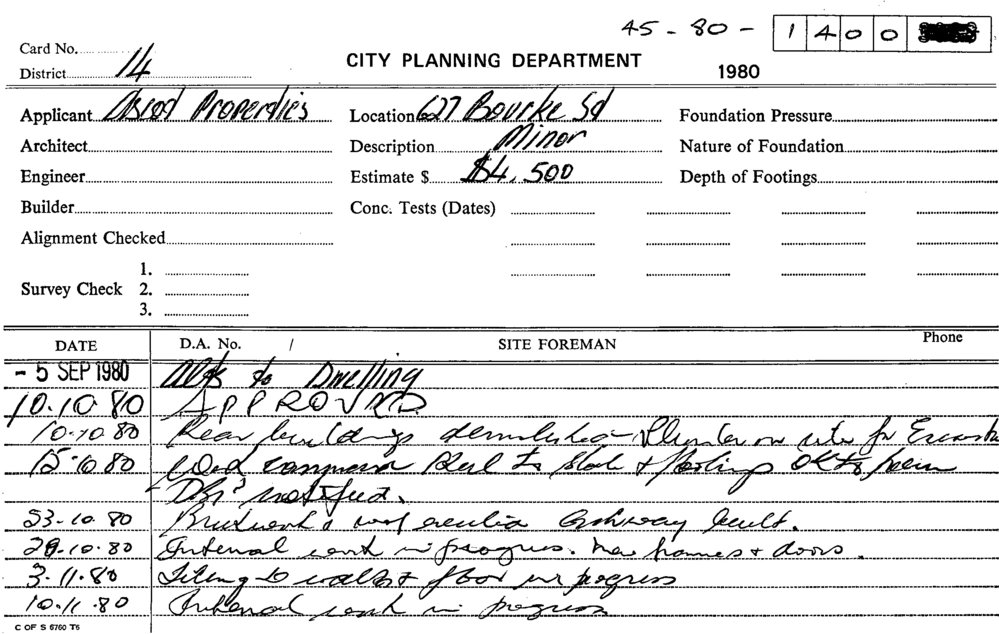 45-80- 1400
Card No.
District 14
CITY PLANNING DEPARTMENT
1980
Applicant Properties
Location 627 Bourke St
Foundation Pressure
Architect
Description Minor
Nature of Foundation
Engineer
Estimate $ $4,500
Depth of Footings
Builder
Conc. Tests (Dates)
Alignment Checked
1.
Survey Check 2.
3.
DATE D.A. No. / SITE FOREMAN Phone
- 5 SEP 1980 Alts to Dwelling
10.10.80 APPROVED
10.10.80 Rear buildings Plumber on site for
15.10.80 Steel to slab & footings OK to
notified.
23.10.80 Brickwork & roof built.
29.10.80 Internal work in progress. New frames & doors.
3.11.80 Tiling to walls & floor in progress
10.11.80 Internal work in progress
C OF S 6760 T6